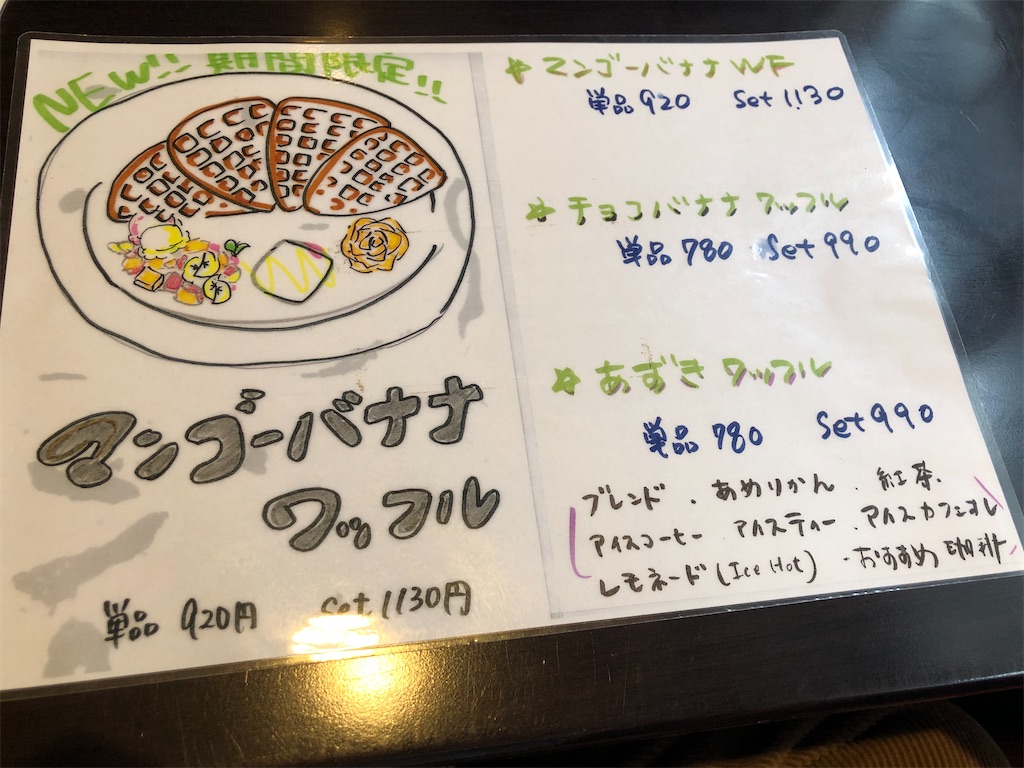 NEW!! 期間限定!!
マンゴーバナナ
ワッフル
単品 920円 set 1130円
マンゴーバナナ WF
単品 920 Set 1130
チョコバナナ ワッフル
単品 780 Set 990
あずき ワッフル
単品 780 Set 990
ブレンド . あめりかん . 紅茶.
アイスコーヒー アイスティー . アイスカフェオレ
レモネード (Ice Hot) . おすすめ 珈琲